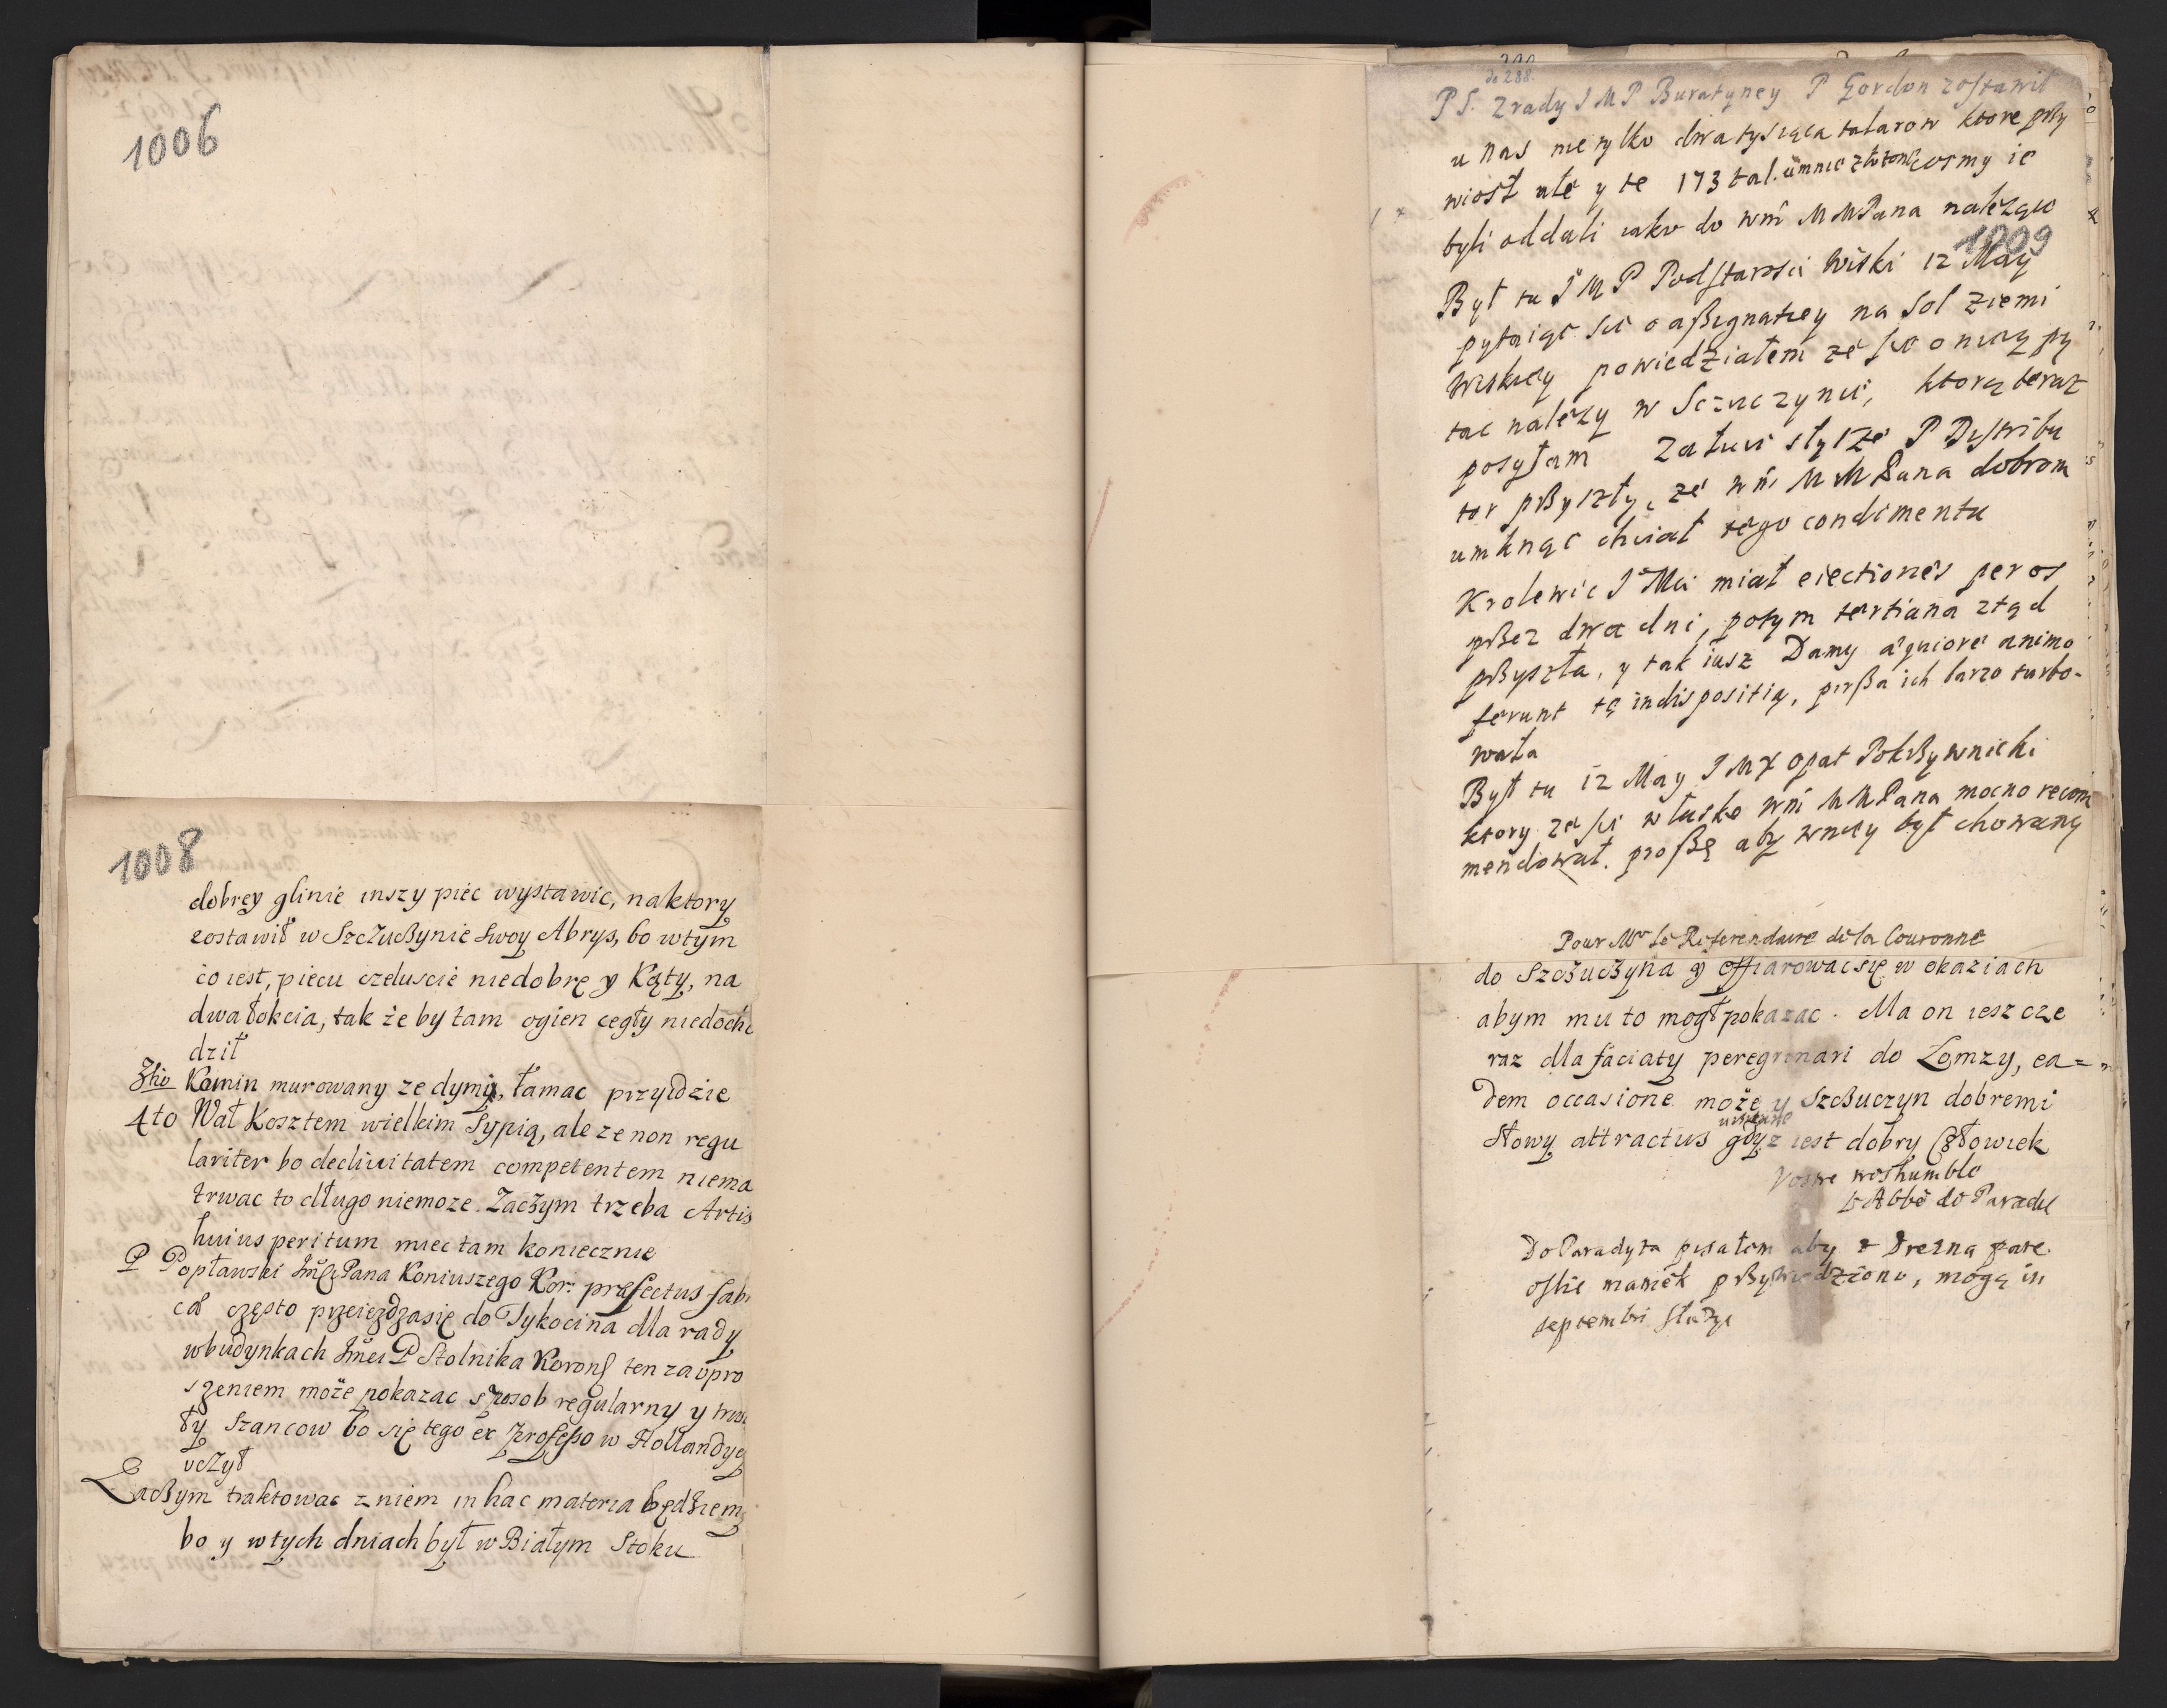 1006
1008
dobrey glinie inszy piec wystawic, naktory
zostawił w Szczuczynie swoy Abrys, bo wtym
co iest, piecu czeluscie niedobre y Kąty, na
dwa łokcia, tak że by tam ogien cegły niedocho
dził
3tio Komin murowany ze dymi, łamac przyidzie
4to Wał Kosztem wielkim Sypią, ale ze non regu
lariter bo declivitatem competentem niema
trwac to długo niemoze. Zaczym trzeba Artis
huius peritum miec tam koniecznie
P Popławski Pana Koniuszego Kor: præfectus fab
często przeiezdzasię do Tykocina dla rady
wbudynkach P Stolnika Koron ten za upro
szeniem może pokazac sposob regularny y trwa
ły Szancow bo się tego ex Professo w Hollandyey
uczył
Zaczym traktowac z niem in hac materia będziemy
bo y wtych dniach był w Białym Stoku
do 288.
PS. Zrady J M P Buratyney P Gordon zostawił
u nas nie tylko dwa tysiąca talarow ktore przy
wiosł ale y te 173 tal. umnie złożone cosmy ie
byli oddali iako do wm M M Pana nalezące
1009
Był tu J M P Podstarosci Wiski 12 May
pytaiąc sie o assignatiey na Sol Ziemi
Wiskiey powiedziałem ze sie o nię py
tac należy w Sczuczynie, ktorą teraz
posyłam P Distribu
tor przyszły, ze wm M M Pana dobrom
umknąc chciał tego condimentu
Krolewic J Mci miał eiectiones per os
przez dwa dni, potym tertiana ztąd
przyszła, y tak iusz Damy æquiore animo
ferunt tę indispositią, pirsza ich barzo turbo-
wała
Był tu 12 May J M X Opat Pokrzywnicki
ktory ze sie własko wm M M Pana mocno recom
mendował. proszę aby wniey był chowany
Pour Mr le Referendaire de la Couronne
do Szczuczyna y offiarowac się w okaziach
abym mu to mogł pokazac. Ma on ieszcze
raz dla faciaty peregrinari do Łomzy, ea=
dem occasione może y Szczuczyn dobremi
Słowy attractus gdyz iest dobry Człowiek
Vostre treshumble
l'Abbé de Paradis
Do Paradyza pisałem aby z Drezna
przywiedziono, mogą in
septembri